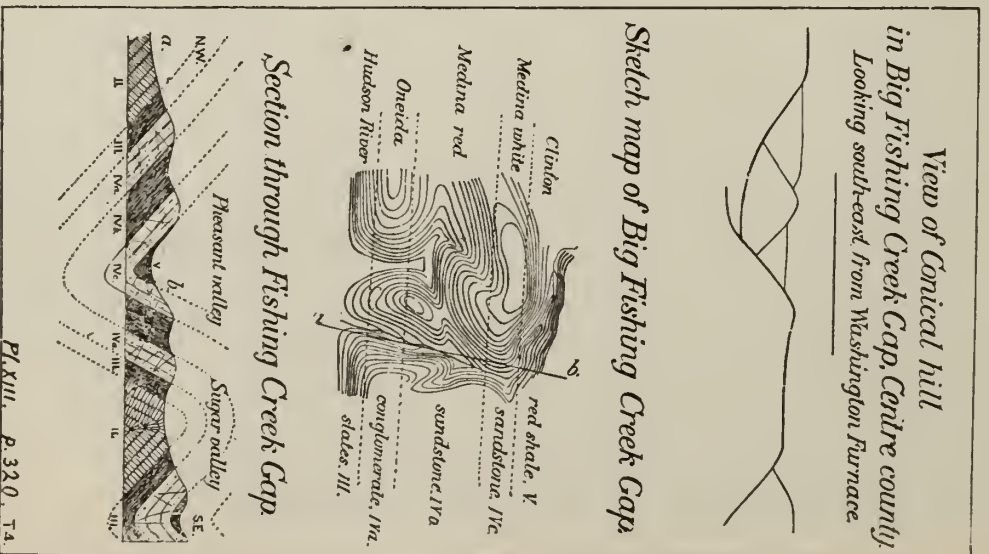 View of Conical hill
in Big Fishing Creek Gap, Centre county.
Looking south-east, from Washington Furnace.
Sketch map of Big Fishing Creek Gap.
Clinton red shale. V.
Medina white sandstone. IVc.
Medina red sandstone. IVa
Oneida conglomerate. IVa.
Hudson River slates. III.
b.
Section through Fishing Creek Gap.
Pheasant valley Sugar valley
N.W. S.E.
a. b.
V
II. III. IVa. IVb. IVc. IVa. III. II.
Pl. XIII, p. 320, T4.